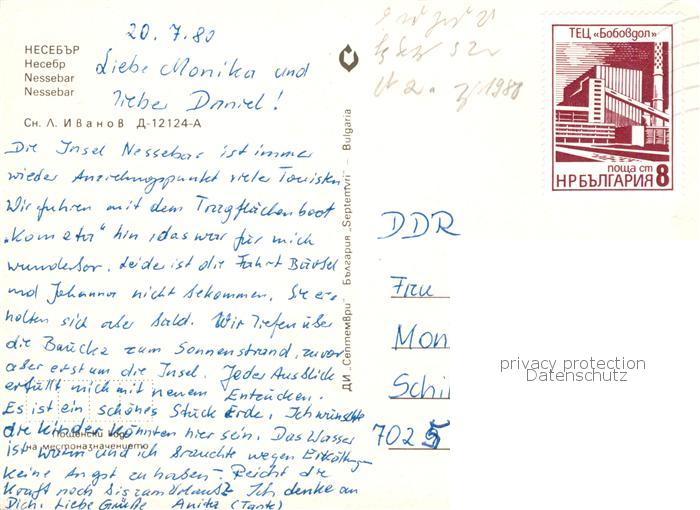 20.7.80
НЕСЕБЪР
Несебр
Nessebar
Nessebar
Liebe Monika und
lieber Daniel!
Сн. Л. Иванов Д-12124-А
Die Insel Nessebar ist immer
wieder Anziehungspunkt vieler Touristen
Wir fuhren mit dem Tragflächenboot
„Kometa" hin, das war für mich
wunderbar. Leider ist die Fahrt Bärbel
und Johanna nicht bekommen. Sie er-
holten sich aber bald. Wir liefen über
die Brücke zum Sonnenstrand, zuvor
aber erst um die Insel. Jeder Ausblick
erfüllt mich mit neuem Entzücken.
Es ist ein schönes Stück Erde. Ich wünschte
die Kinder könnten hier sein. Das Wasser
ist warm und ich brauchte wegen Erkältung
keine Angst zu haben. Reicht die
Kraft noch bis zum Urlaub? Ich denke an
Dich. Liebe Grüße Anita (Tante)
Пощенски код
на местоназначението
ДИ „Септември" България „Septemvri" – Bulgaria
1980
ТЕЦ «Бобовдол»
поща ст
НРБЪЛГАРИЯ 8
DDR
Frau
Mon
Schi
7025
privacy protection
Datenschutz